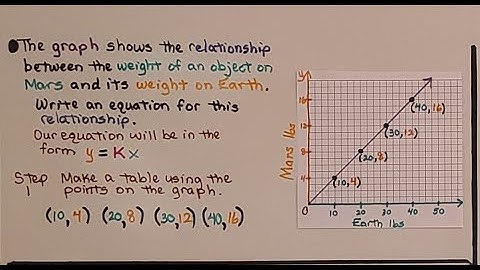 The graph shows the relationship
between the weight of an object on
Mars and its weight on Earth.
Write an equation for this
relationship.
Our equation will be in the
form y = Kx
Step 1 Make a table using the
points on the graph.
(10,4) (20,8) (30,12) (40,16)
y
Mars lbs
16
12
8
4
(40,16)
(30,12)
(20,8)
(10,4)
0 10 20 30 40 50 x
Earth lbs